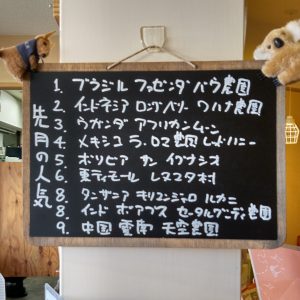 先月の人気
1. ブラジル ファゼンダ バウ農園
2. インドネシア ロングベリー ワハナ農園
3. ウガンダ アフリカンムーン
4. メキシコ ラ・ロマ農園 レッドハニー
5. ボリビア サン イグナシオ
6. 東ティモール レスマタ村
8. タンザニア キリマンジャロ ルカニ
8. インド ポアブス セータルグンディ農園
9. 中国 雲南 天空農園